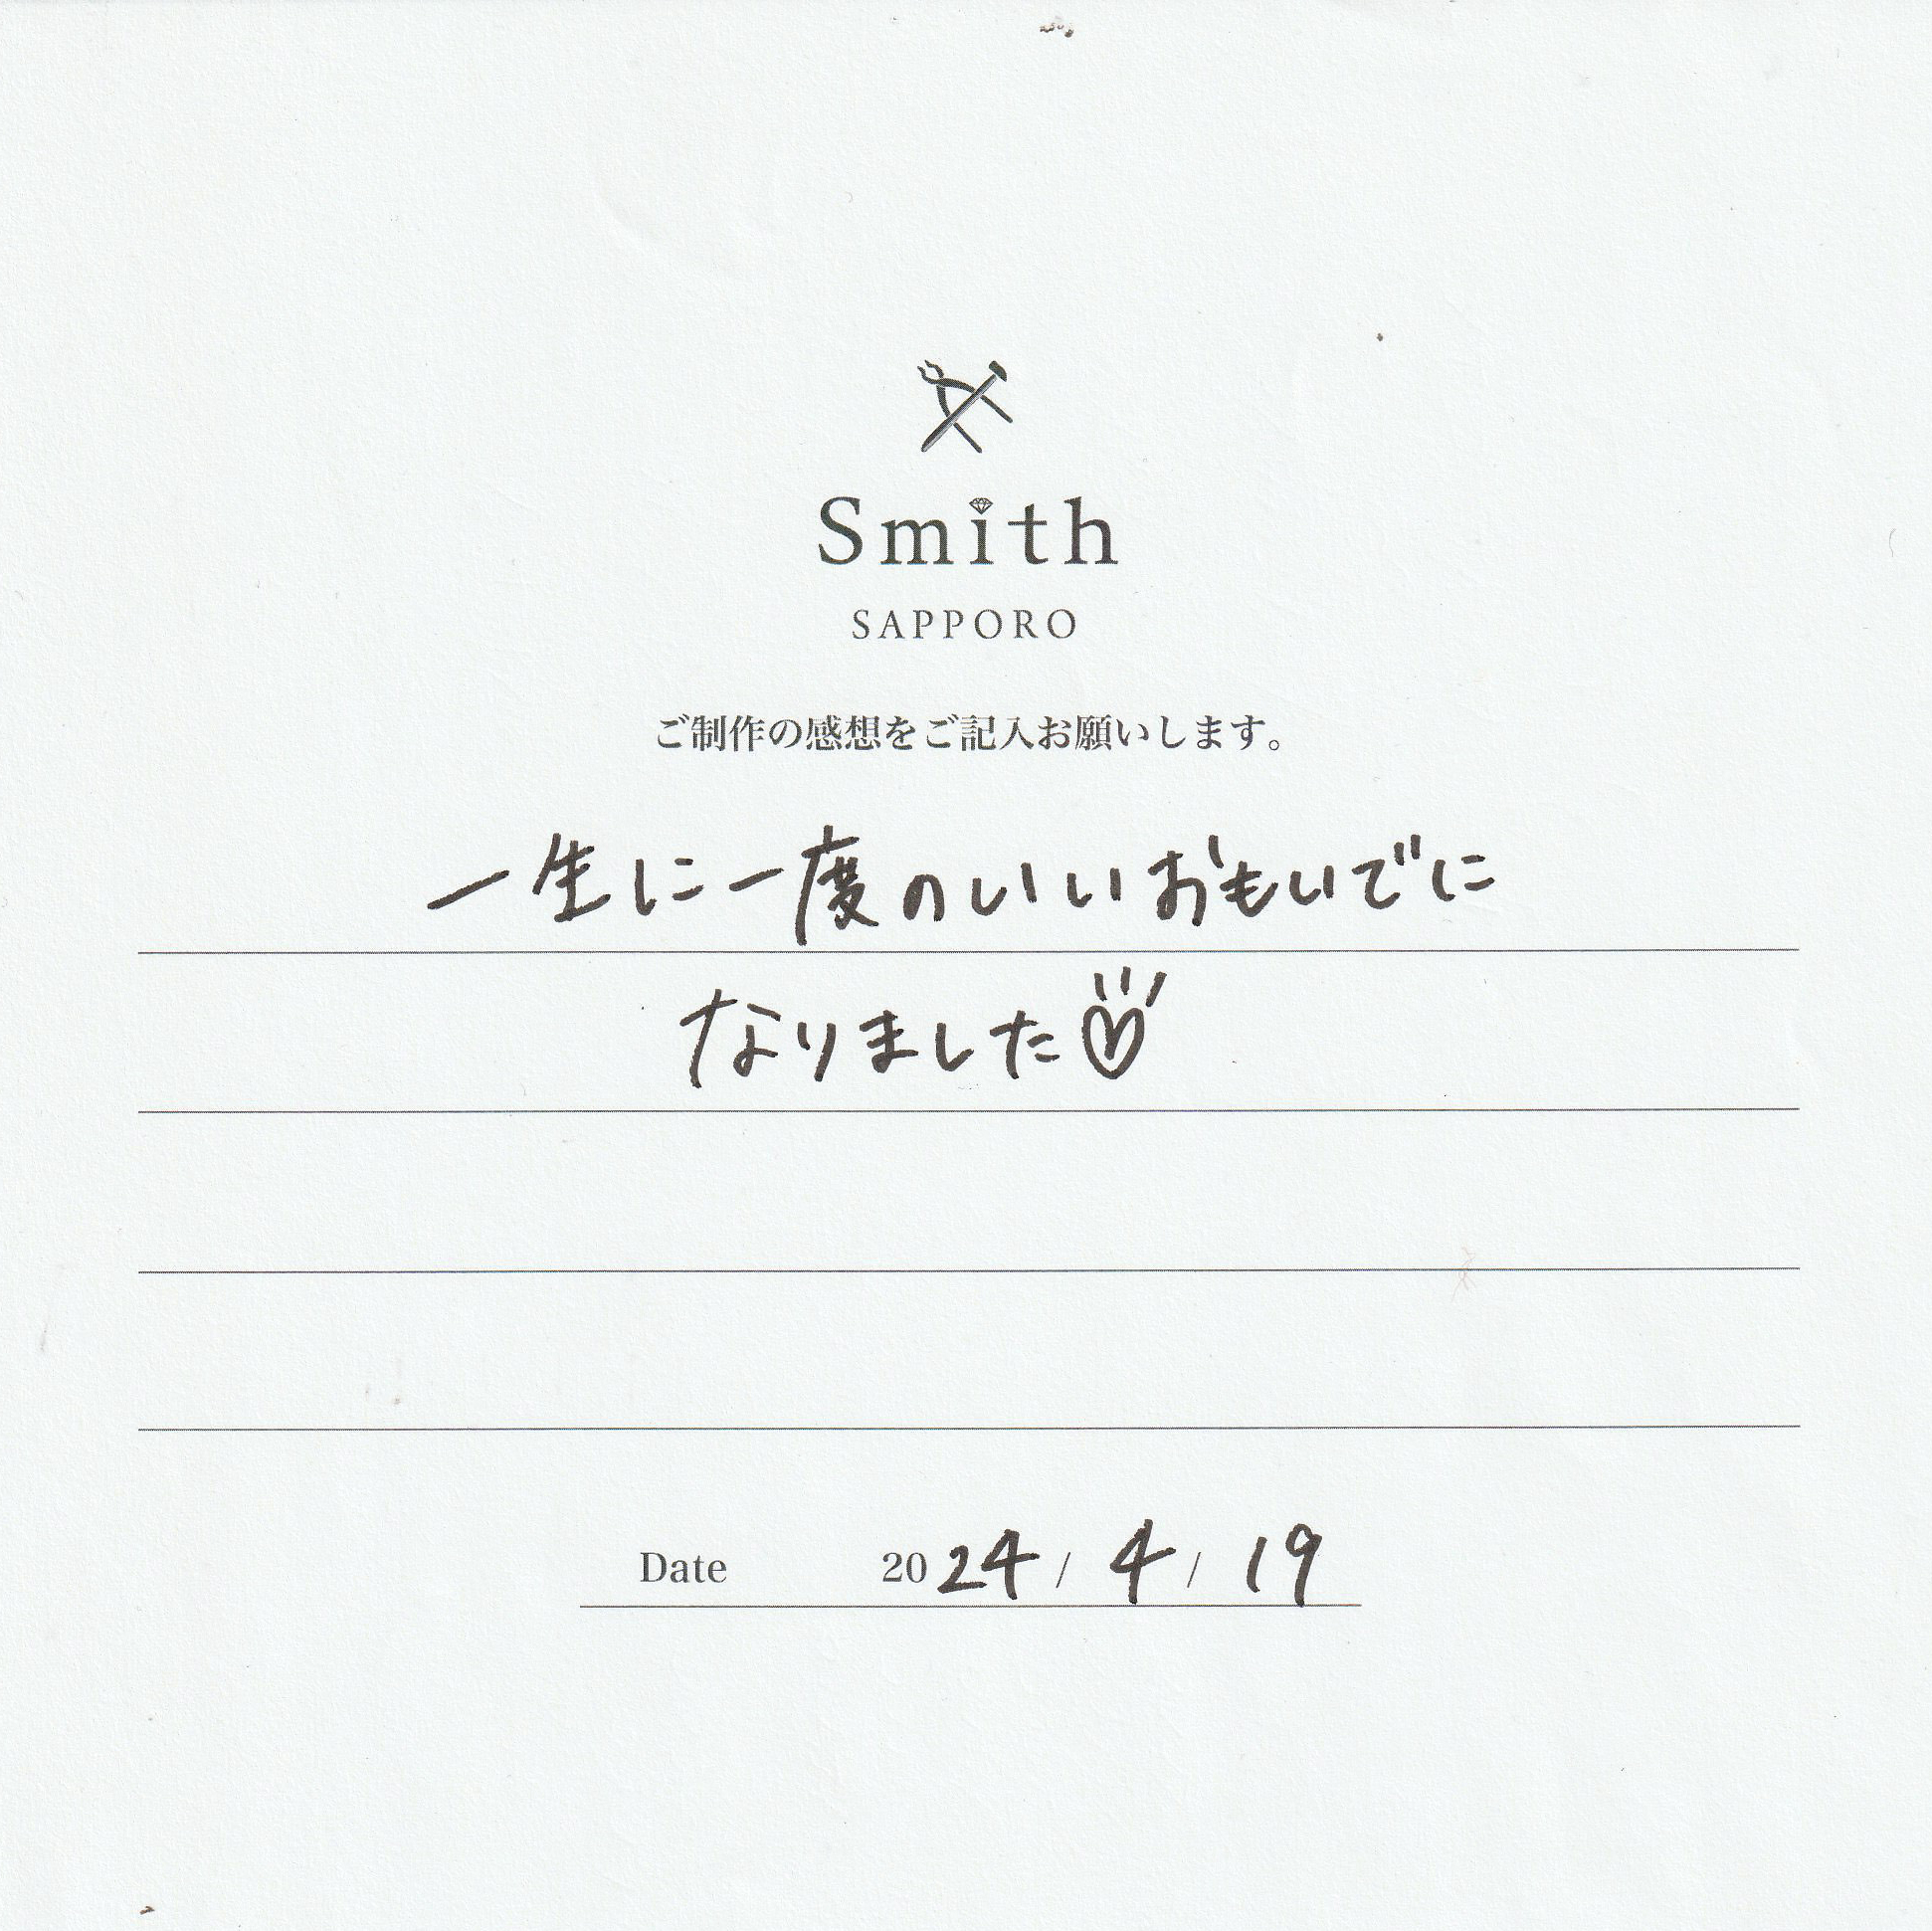 Smith
SAPPORO
ご制作の感想をご記入お願いします。
一生に一度のいいおもいでに
なりました♡
Date 2024 / 4 / 19